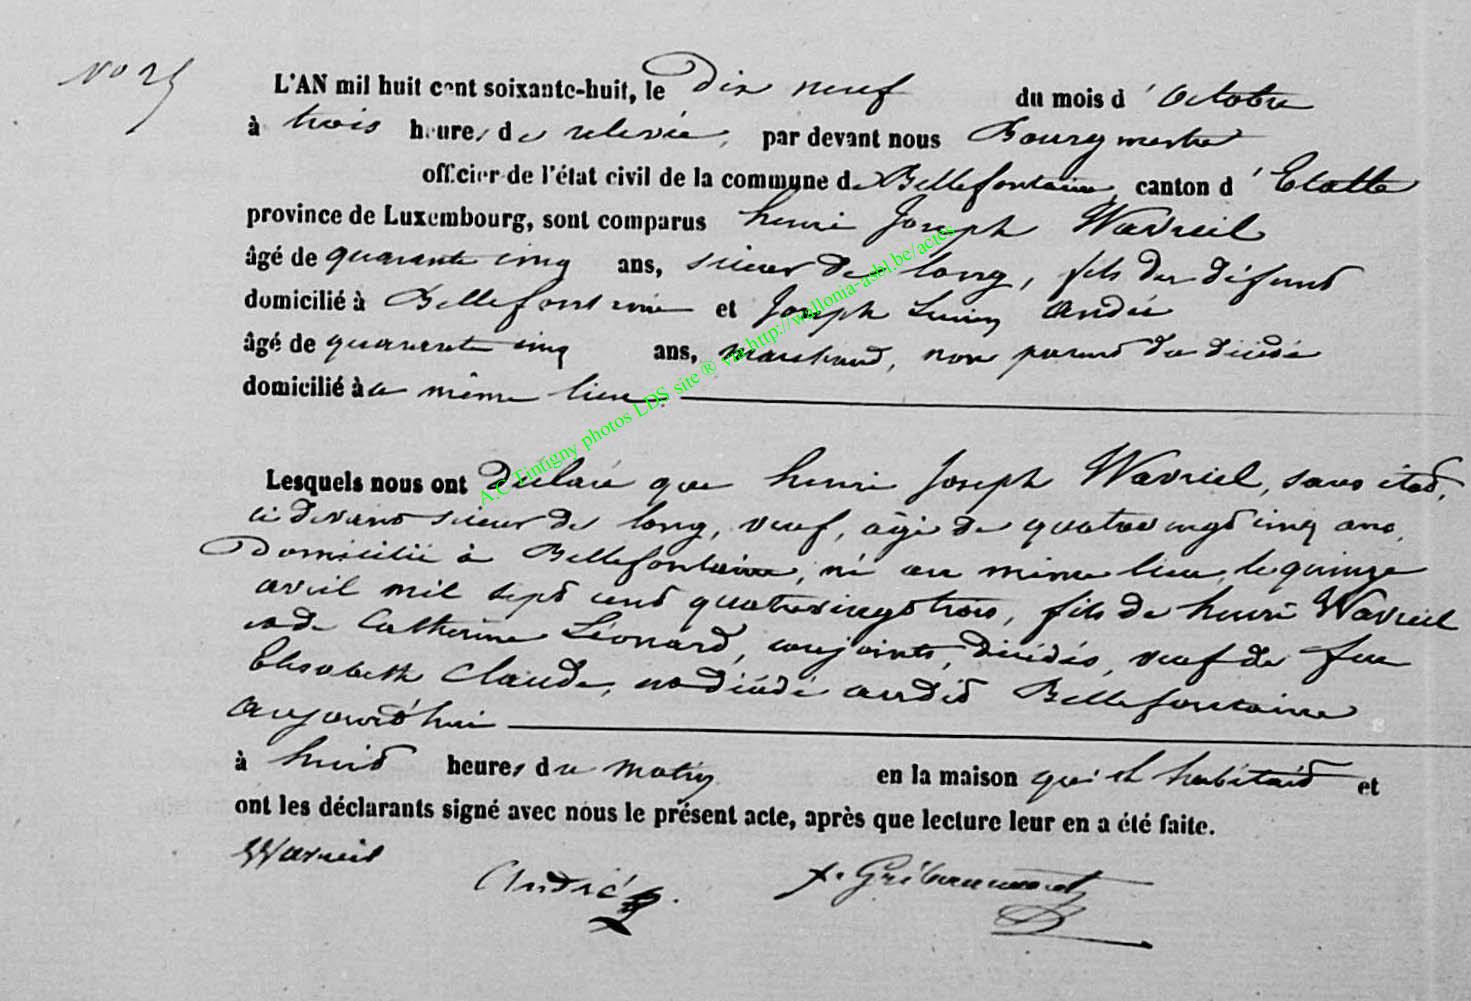 No 25
L'AN mil huit cent soixante-huit, le Dix neuf du mois d'octobre
à trois heures de relevée, par devant nous Bourgmestre
officier de l'état civil de la commune de Bellefontaine, canton d'Etalle
province de Luxembourg, sont comparus henri Joseph Wavreil
âgé de quarante cinq ans, scieur de long, fils du défunt
domicilié à Bellefontaine et Joseph André
âgé de quarante cinq ans, marchand, non parent du décédé
domicilié au même lieu.
Lesquels nous ont déclaré que henri Joseph Wavreil, sans état,
ci devant scieur de long, veuf, âgé de quatrevingt cinq ans,
Domicilié à Bellefontaine, né au même lieu, le quinze
avril mil sept cent quatrevingt trois, fils de henri Wavreil
et de Catherine Léonard, conjoints, décédés, veuf de feue
Elisabeth Claude, est décédé audit Bellefontaine
aujourd'hui
à huit heures du matin en la maison qu'il habitait et
ont les déclarants signé avec nous le présent acte, après que lecture leur en a été faite.
Wavreil André
A.C Tintigny photos LDS site ® via http://wallonia-asbl.be/actes